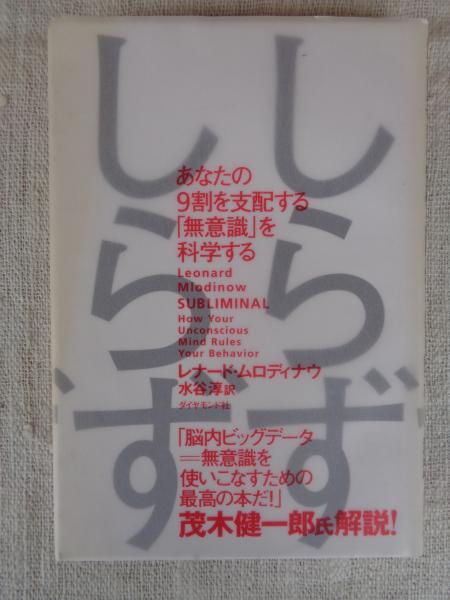 しらず
しらず
あなたの
9割を支配する
「無意識」を
科学する
Leonard
Mlodinow
SUBLIMINAL
How Your
Unconscious
Mind Rules
Your Behavior
レナード・ムロディナウ
水谷淳訳
ダイヤモンド社
「脳内ビッグデータ
＝無意識を
使いこなすための
最高の本だ!」
茂木健一郎氏解説!